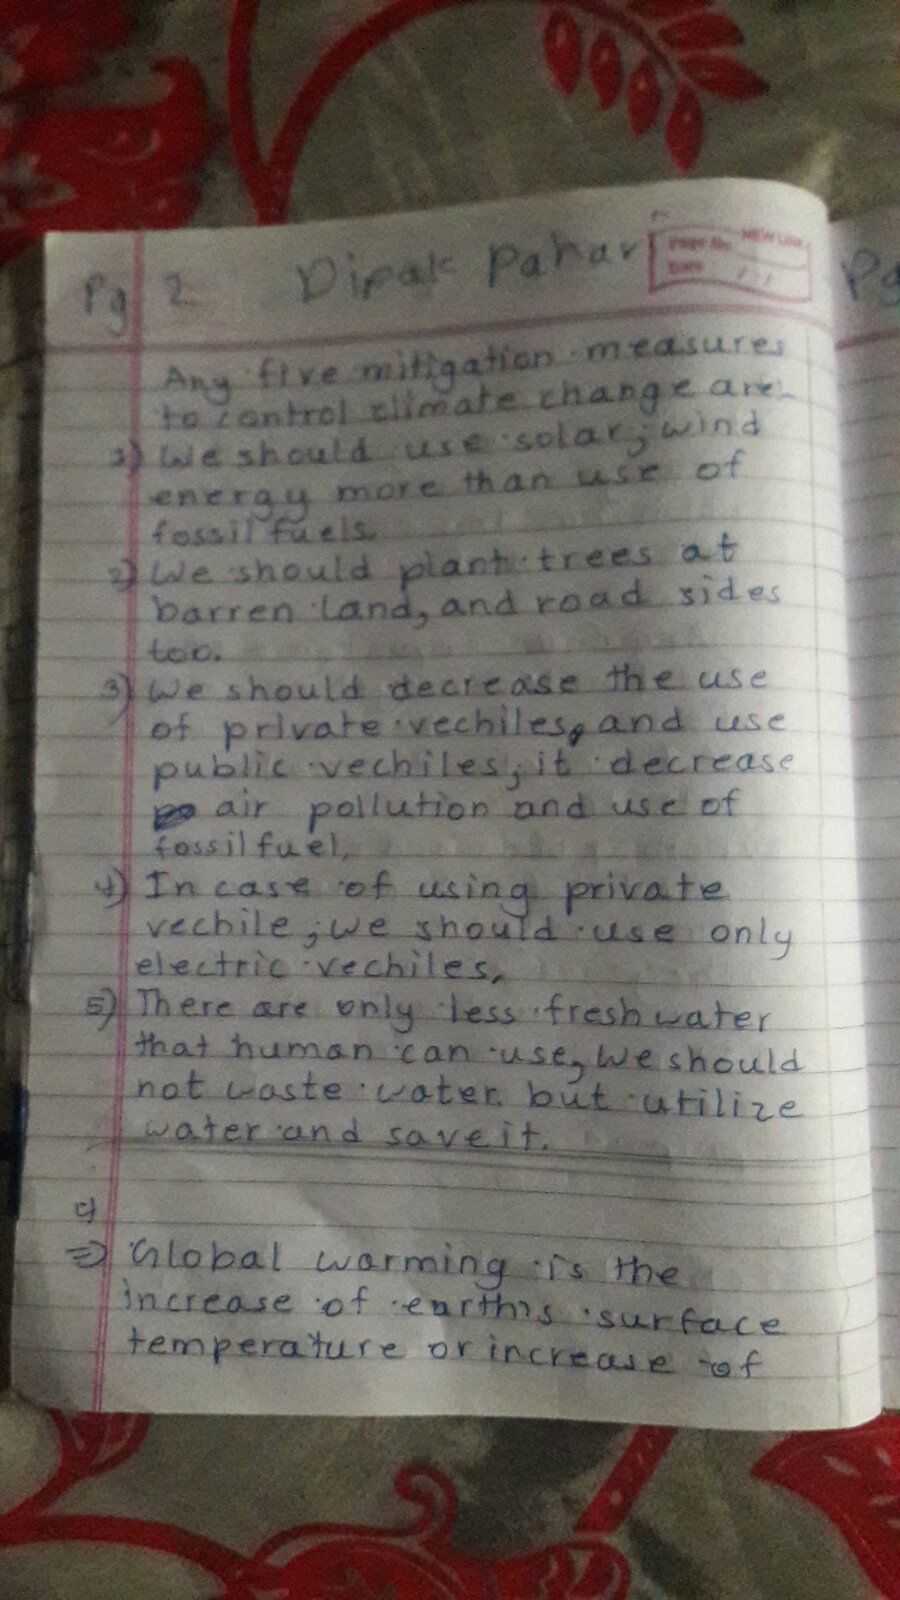 Pg 2 Dipak Pahari
Page No.
NEW LINK
Date / /
Pg
Any five mitigation measures
to control climate change are:-
1) We should use solar, wind
energy more than use of
fossil fuels.
2) We should plant trees at
barren land, and road sides
too.
3) We should decrease the use
of private vechiles, and use
public vechiles, it decrease
air pollution and use of
fossil fuel,
4) In case of using private
vechile, we should use only
electric vechiles,
5) There are only less fresh water
that human can use, We should
not waste water but utilize
water and save it.
=> Global warming is the
increase of earth's surface
temperature or increase of